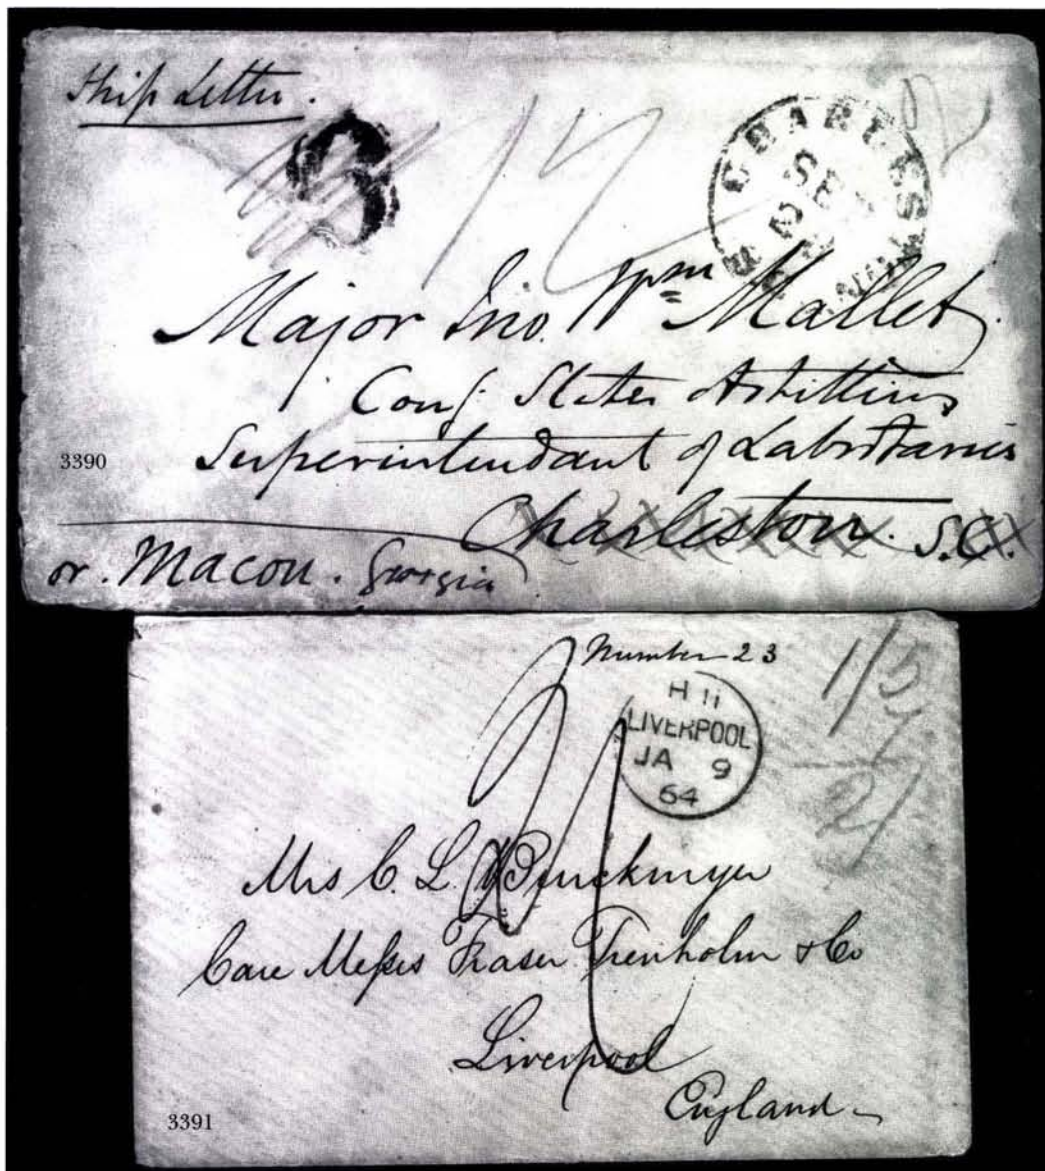 Ship Letter.
12
CHARLES
SEP
Major Jno. Wm Mallet,
Conf. States Artillery
3390
Superintendant of Labratories
Charleston. S.C.
or. Macon. Georgia
Number 23
1/5
H 11
LIVERPOOL
JA 9
64
2/
Mrs C. L. Burckmyer
Care Messrs Fraser Trenholm & Co
Liverpool
England
3391